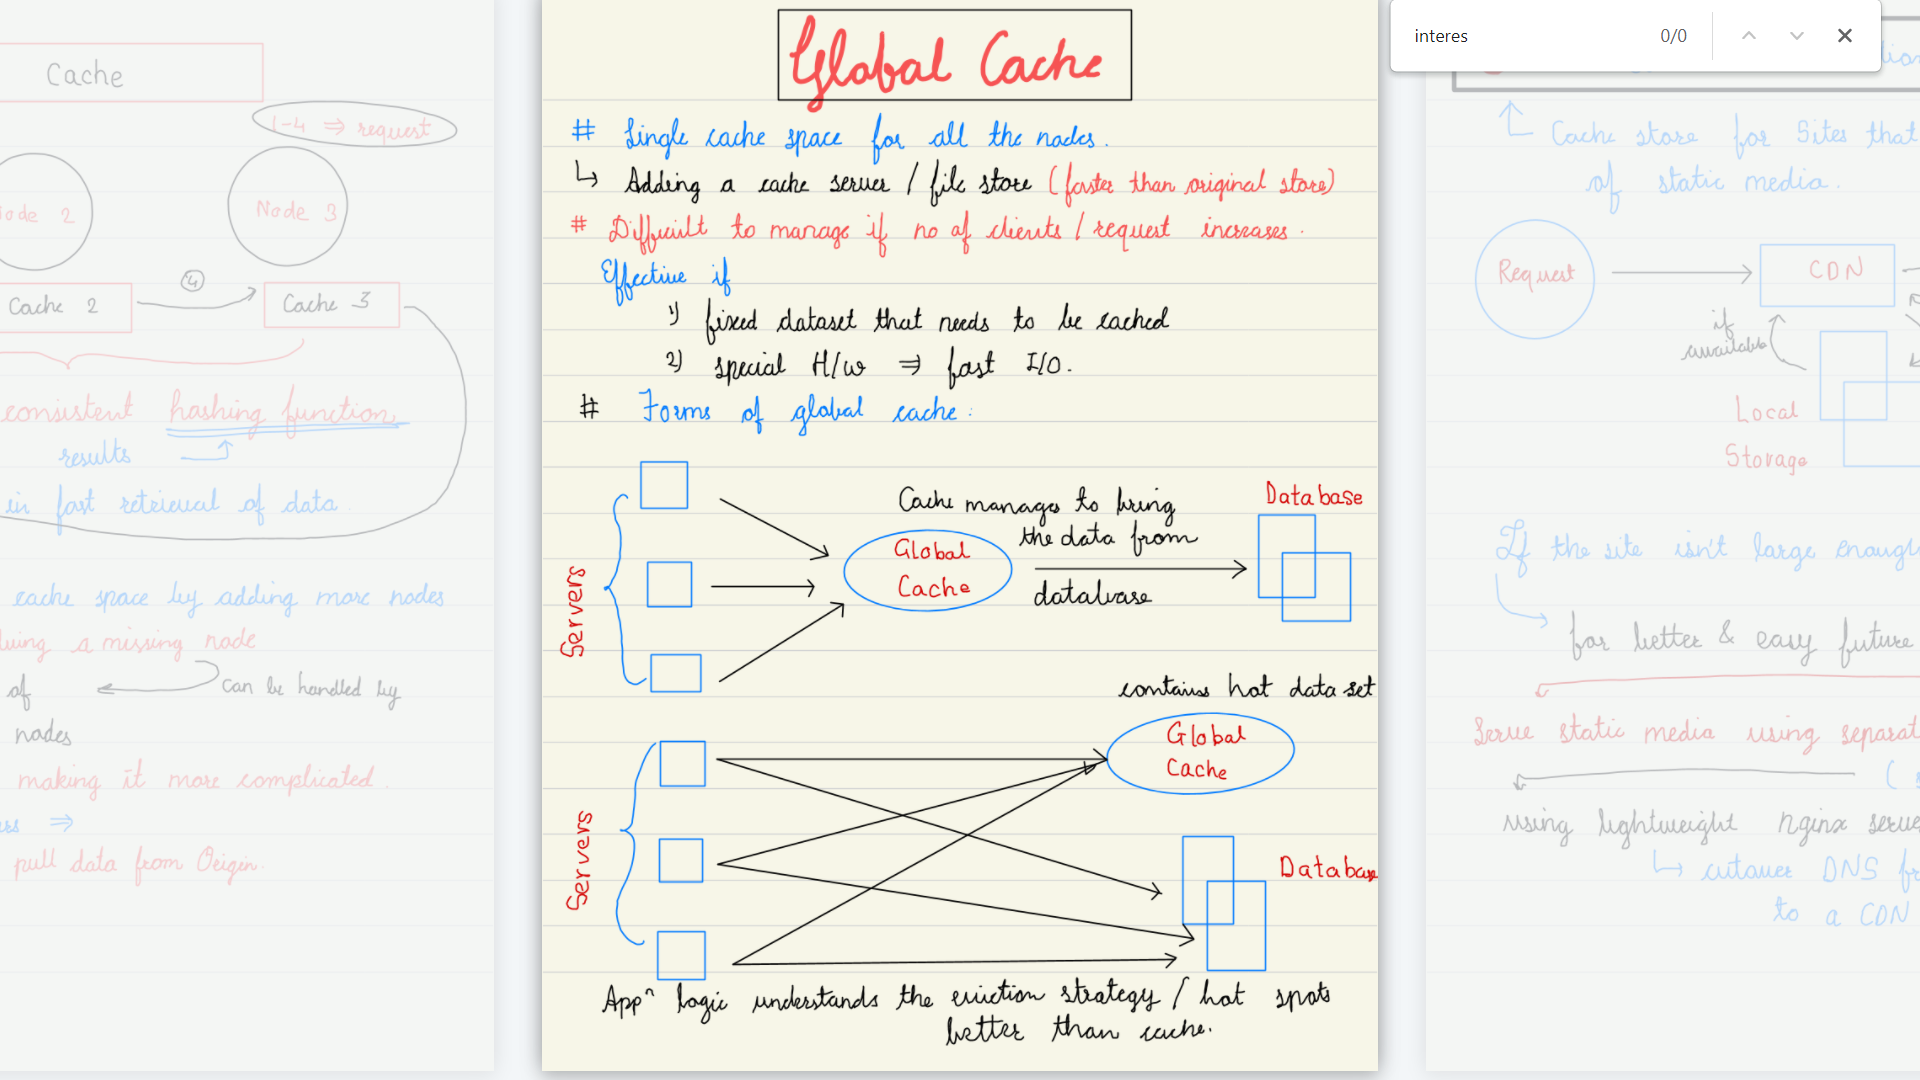 Cache
1-4 ⇒ request
Node 2
Node 3
④
Cache 2
Cache 3
consistent hashing function
results
in fast retrieval of data.
cache space by adding more nodes
a missing node
of
can be handled by
nodes
making it more complicated.
⇒
pull data from Origin.
Global Cache
# Single cache space for all the nodes.
↳ Adding a cache server / file store (faster than original store)
# Difficult to manage if no of clients / request increases.
Effective if
1) fixed dataset that needs to be cached
2) special H/w ⇒ fast I/O.
# Forms of global cache:
Servers
Global Cache
Cache manages to bring
the data from
database
Database
contains hot data set
Servers
Global
Cache
Database
Appⁿ logic understands the eviction strategy / hot spots
better than cache.
interes
0/0
Cache store for Sites that
of static media.
Request
CDN
if
available
Local
Storage
If the site isn't large enough
for better & easy future
Serve static media using separat
using lightweight nginx serve
↳ cutover DNS fr
to a CDN